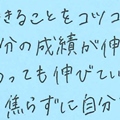 できることをコツコ
分の成績が伸
っても伸びてい
焦らずに自分